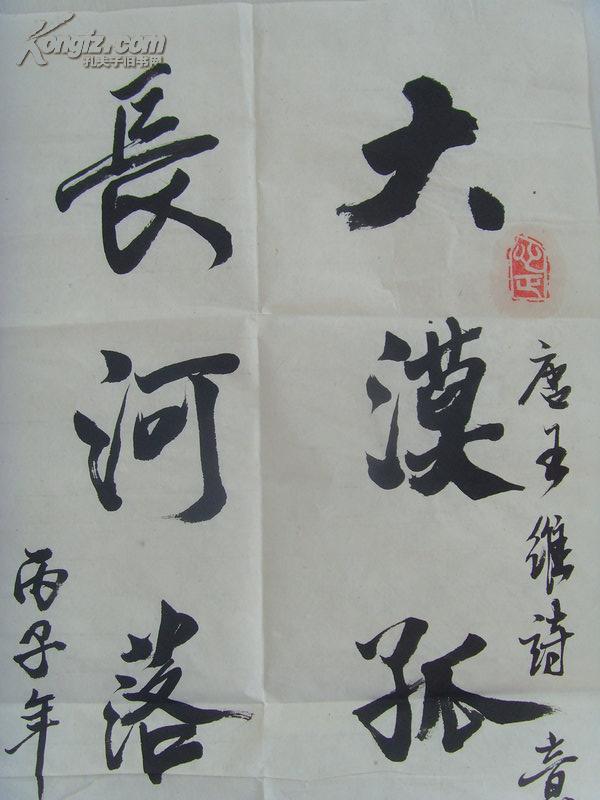 Kongfz.com
孔夫子旧书网
唐王维诗意
大漠孤
長河落
丙子年